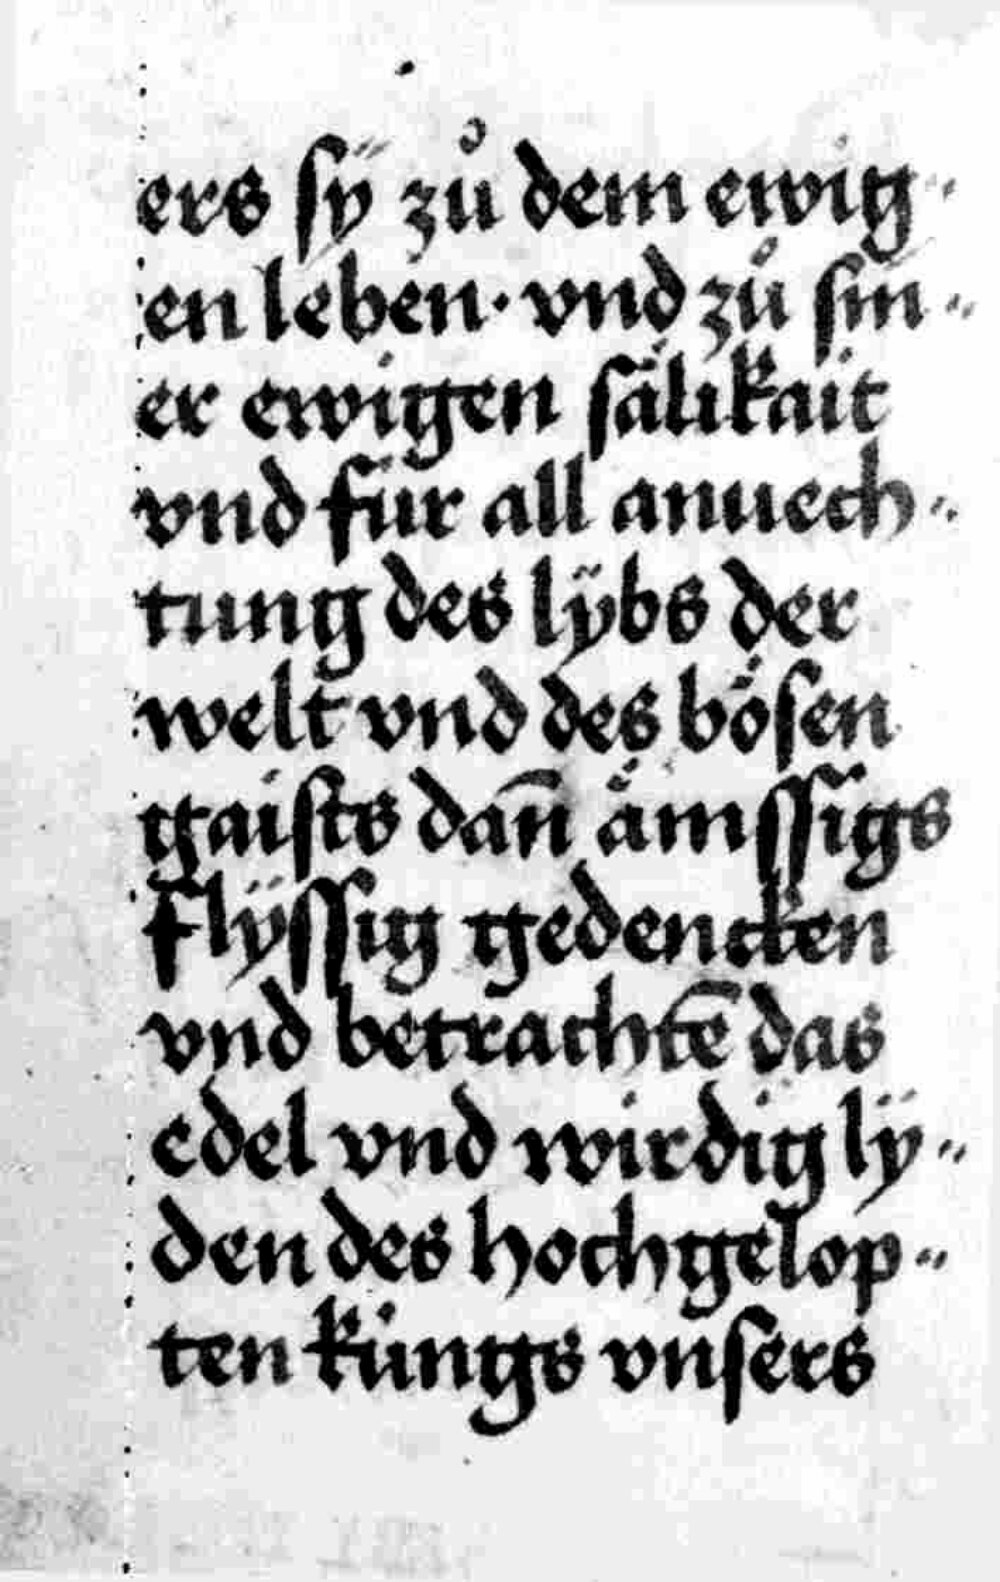 ers sÿ zů dem ewig„
en leben· vnd zů sin„
er ewigen sälikait
vnd für all anuech„
tung des lÿbs der
welt vnd des bösen
gaists dan̄ ämssigs
flÿssig gedencken
vnd betrachtē das
edel vnd wirdig lÿ„
den des hochgelop„
ten küngs vnsers